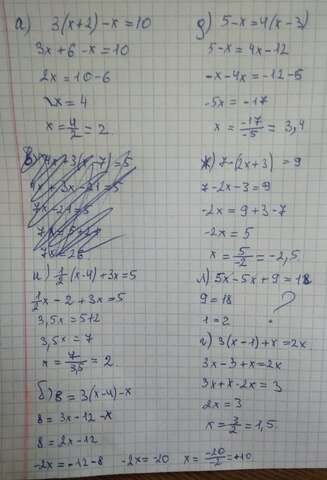 а) 3(x+2)-x=10
3x+6-x=10
2x=10-6
2x=4
x=4/2=2.
в) 4x+3(x-7)=5
4x+3x-21=5
7x-21=5
7x=5+21
7x=26
и) 1/2(x-4)+3x=5
1/2x-2+3x=5
3,5x=5+2
3,5x=7
x=7/3,5=2.
б) 8=3(x-4)-x
8=3x-12-x
8=2x-12
-2x=-12-8 -2x=-20 x=-20/-2=+10.
д) 5-x=4(x-3)
5-x=4x-12
-x-4x=-12-5
-5x=-17
x=-17/-5=3,4
ж) 7-(2x+3)=9
7-2x-3=9
-2x=9+3-7
-2x=5
x=5/-2=-2,5
л) 5x-5x+9=18
9=18 ?
1=2
г) 3(x-1)+x=2x
3x-3+x=2x
3x+x-2x=3
2x=3
x=3/2=1,5.